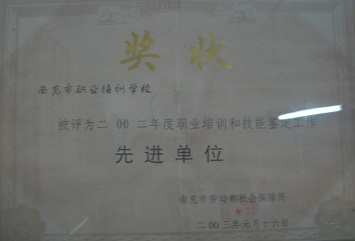 奖状
南充市职业培训学校
被评为二00二年度职业培训和技能鉴定工作
先进单位
南充市劳动和社会保障局
二00三年元月十六日